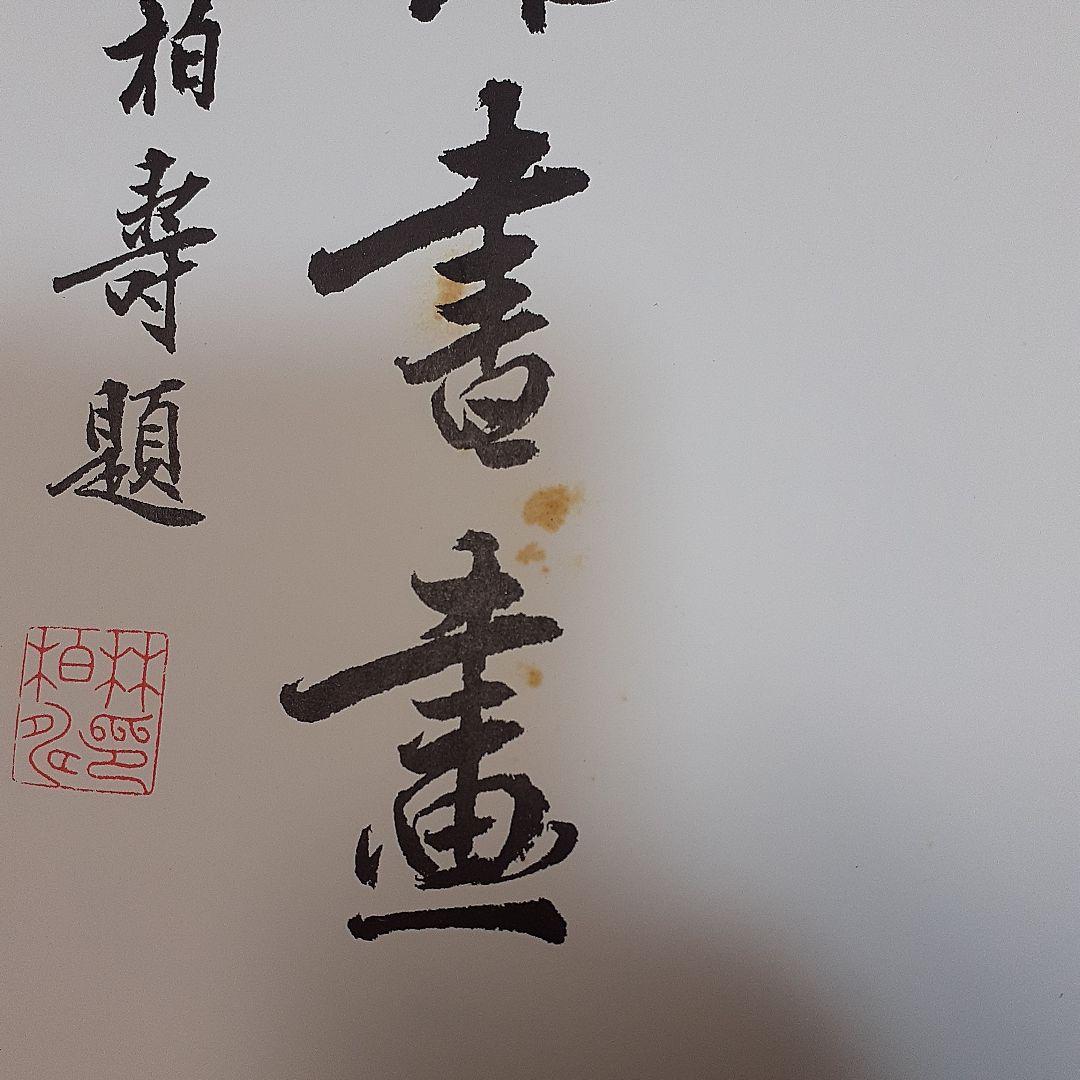 書畫
柏壽題
林柏壽印